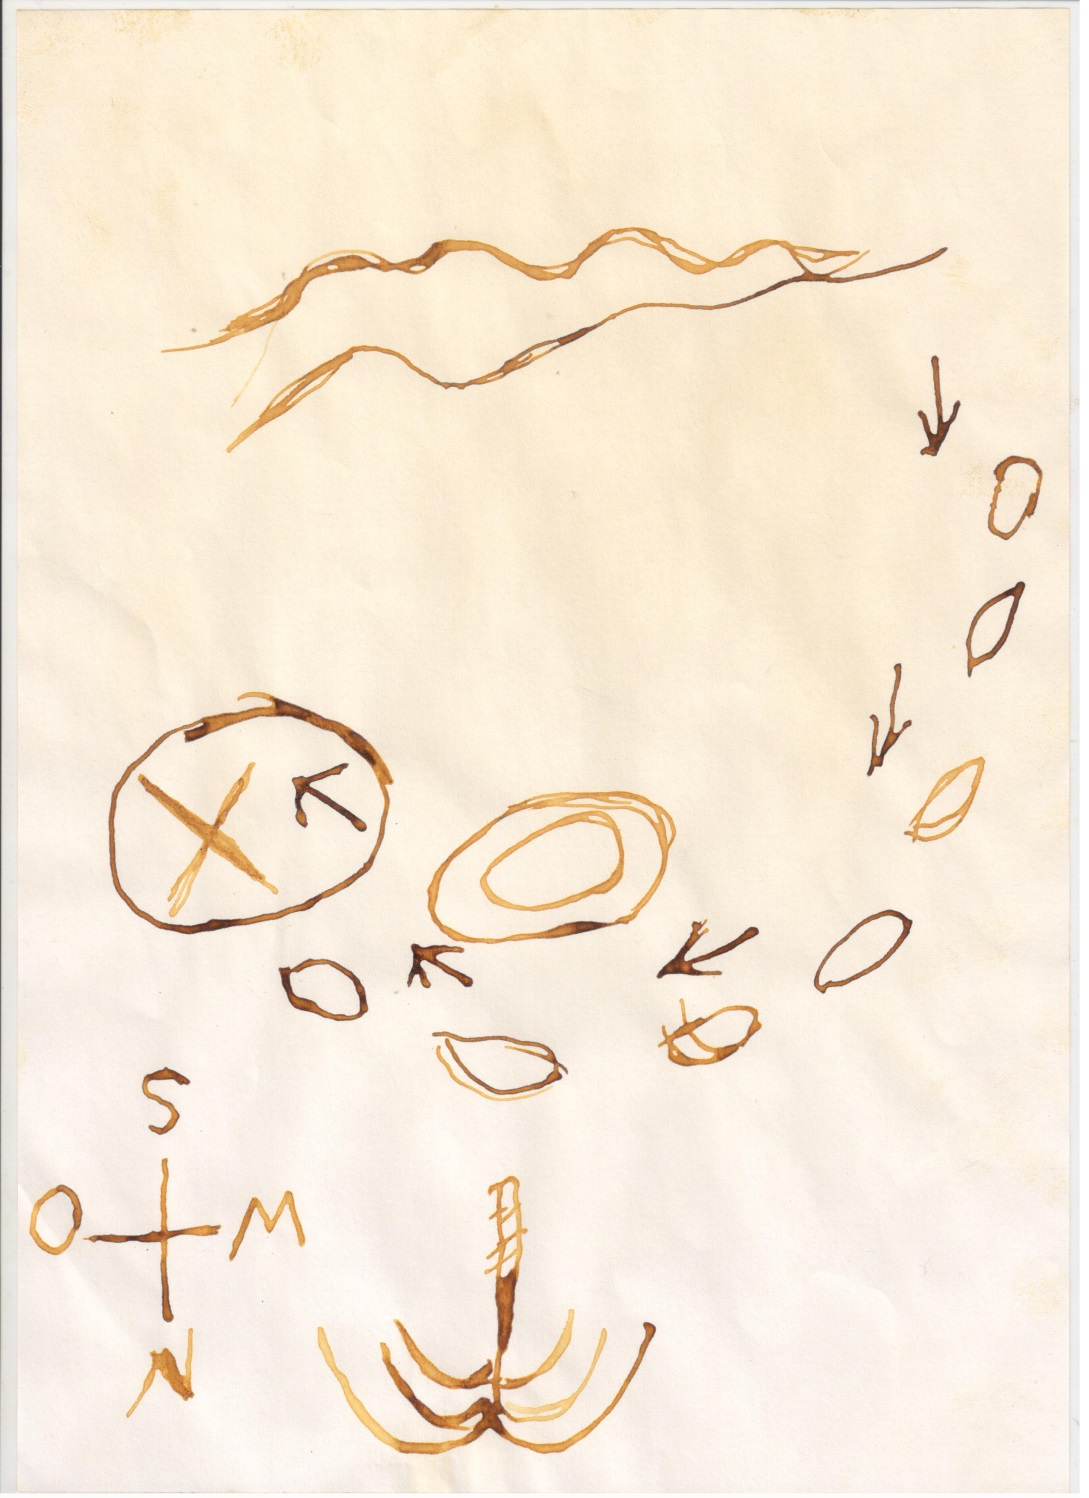 S
O M
N